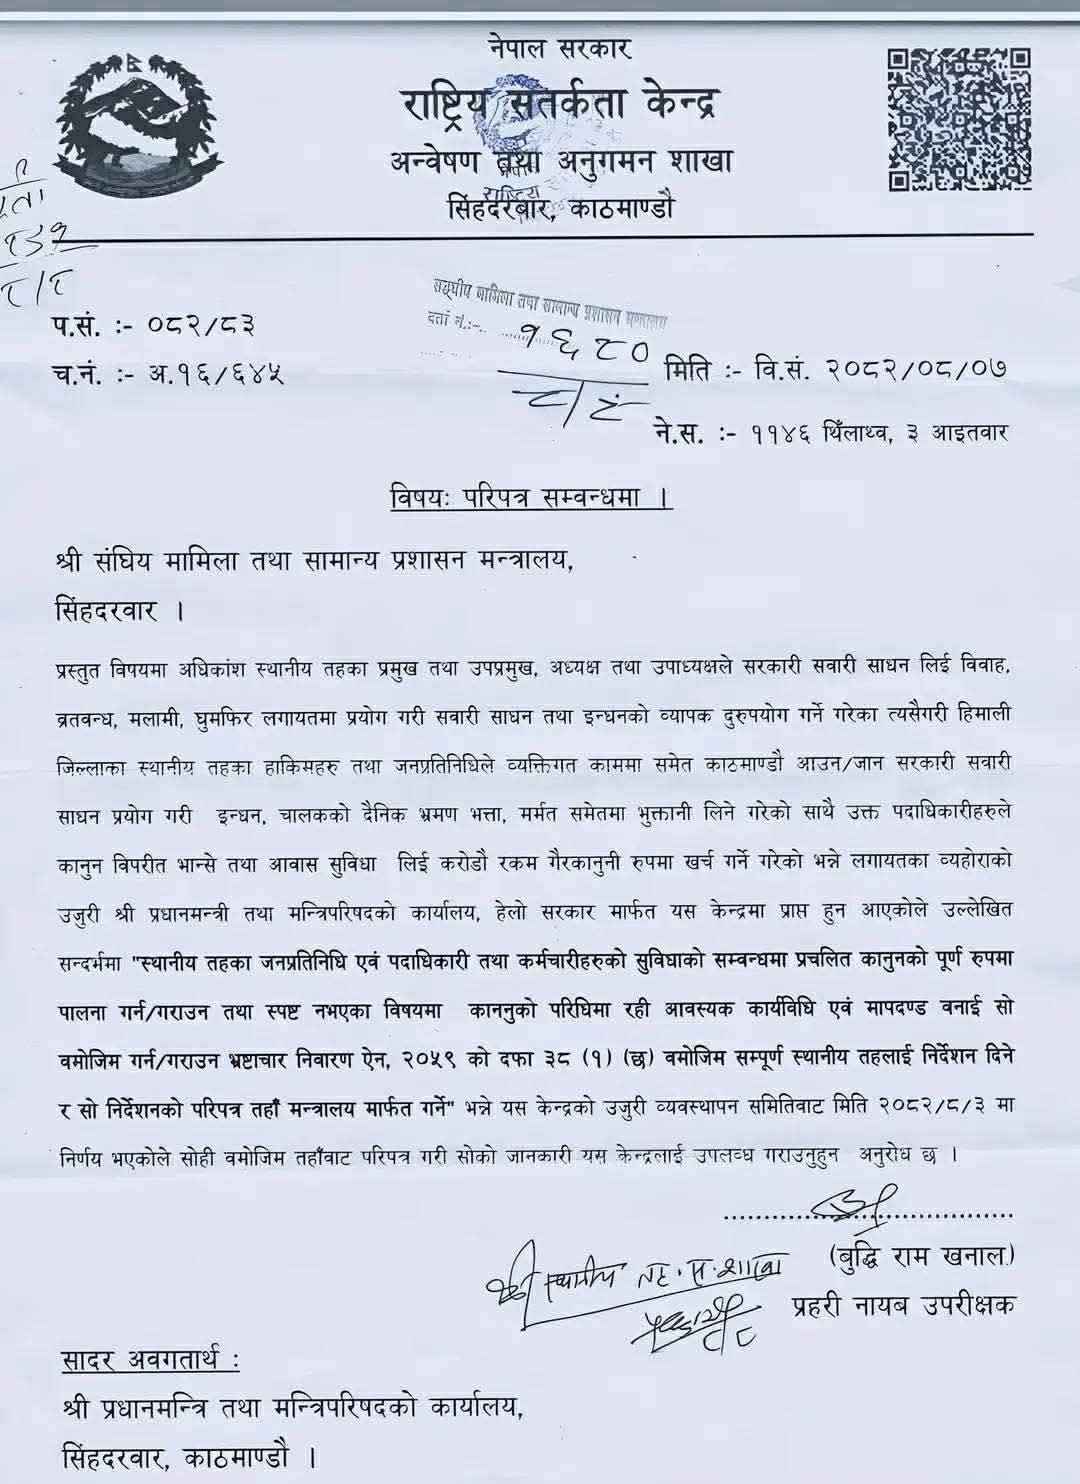 नेपाल सरकार
राष्ट्रिय सतर्कता केन्द्र
अन्वेषण तथा अनुगमन शाखा
सिंहदरबार, काठमाण्डौ
प.सं. :- ०८२/८३
च.नं. :- अ.१६/६४५
सङ्घीय मामिला तथा सामान्य प्रशासन मन्त्रालय
दर्ता नं.:-
१६८०
मिति :- वि.सं. २०८२/०८/०७
ने.स. :- ११४६ थिंलाथ्व, ३ आइतवार
विषय: परिपत्र सम्वन्धमा ।
श्री संघिय मामिला तथा सामान्य प्रशासन मन्त्रालय,
सिंहदरवार ।
प्रस्तुत विषयमा अधिकांश स्थानीय तहका प्रमुख तथा उपप्रमुख, अध्यक्ष तथा उपाध्यक्षले सरकारी सवारी साधन लिई विवाह,
ब्रतवन्ध, मलामी, घुमफिर लगायतमा प्रयोग गरी सवारी साधन तथा इन्धनको व्यापक दुरुपयोग गर्ने गरेका त्यसैगरी हिमाली
जिल्लाका स्थानीय तहका हाकिमहरु तथा जनप्रतिनिधिले व्यक्तिगत काममा समेत काठमाण्डौ आउन/जान सरकारी सवारी
साधन प्रयोग गरी इन्धन, चालकको दैनिक भ्रमण भत्ता, मर्मत समेतमा भुक्तानी लिने गरेको साथै उक्त पदाधिकारीहरुले
कानुन विपरीत भान्से तथा आवास सुविधा लिई करोडौ रकम गैरकानुनी रुपमा खर्च गर्ने गरेको भन्ने लगायतका व्यहोराको
उजुरी श्री प्रधानमन्त्री तथा मन्त्रिपरिषदको कार्यालय, हेलो सरकार मार्फत यस केन्द्रमा प्राप्त हुन आएकोले उल्लेखित
सन्दर्भमा "स्थानीय तहका जनप्रतिनिधि एवं पदाधिकारी तथा कर्मचारीहरुको सुविधाको सम्वन्धमा प्रचलित कानुनको पूर्ण रुपमा
पालना गर्न/गराउन तथा स्पष्ट नभएका विषयमा काननुको परिधिमा रही आवस्यक कार्यविधि एवं मापदण्ड वनाई सो
वमोजिम गर्न/गराउन भ्रष्टाचार निवारण ऐन, २०५९ को दफा ३८ (१) (छ) वमोजिम सम्पूर्ण स्थानीय तहलाई निर्देशन दिने
र सो निर्देशनको परिपत्र तहाँ मन्त्रालय मार्फत गर्ने" भन्ने यस केन्द्रको उजुरी व्यवस्थापन समितिवाट मिति २०८२/८/३ मा
निर्णय भएकोले सोही वमोजिम तहाँवाट परिपत्र गरी सोको जानकारी यस केन्द्रलाई उपलव्ध गराउनुहुन अनुरोध छ ।
(बुद्धि राम खनाल)
श्री स्थानीय तह.स.शाखा
प्रहरी नायब उपरीक्षक
सादर अवगतार्थ :
श्री प्रधानमन्त्रि तथा मन्त्रिपरिषदको कार्यालय,
सिंहदरवार, काठमाण्डौ ।